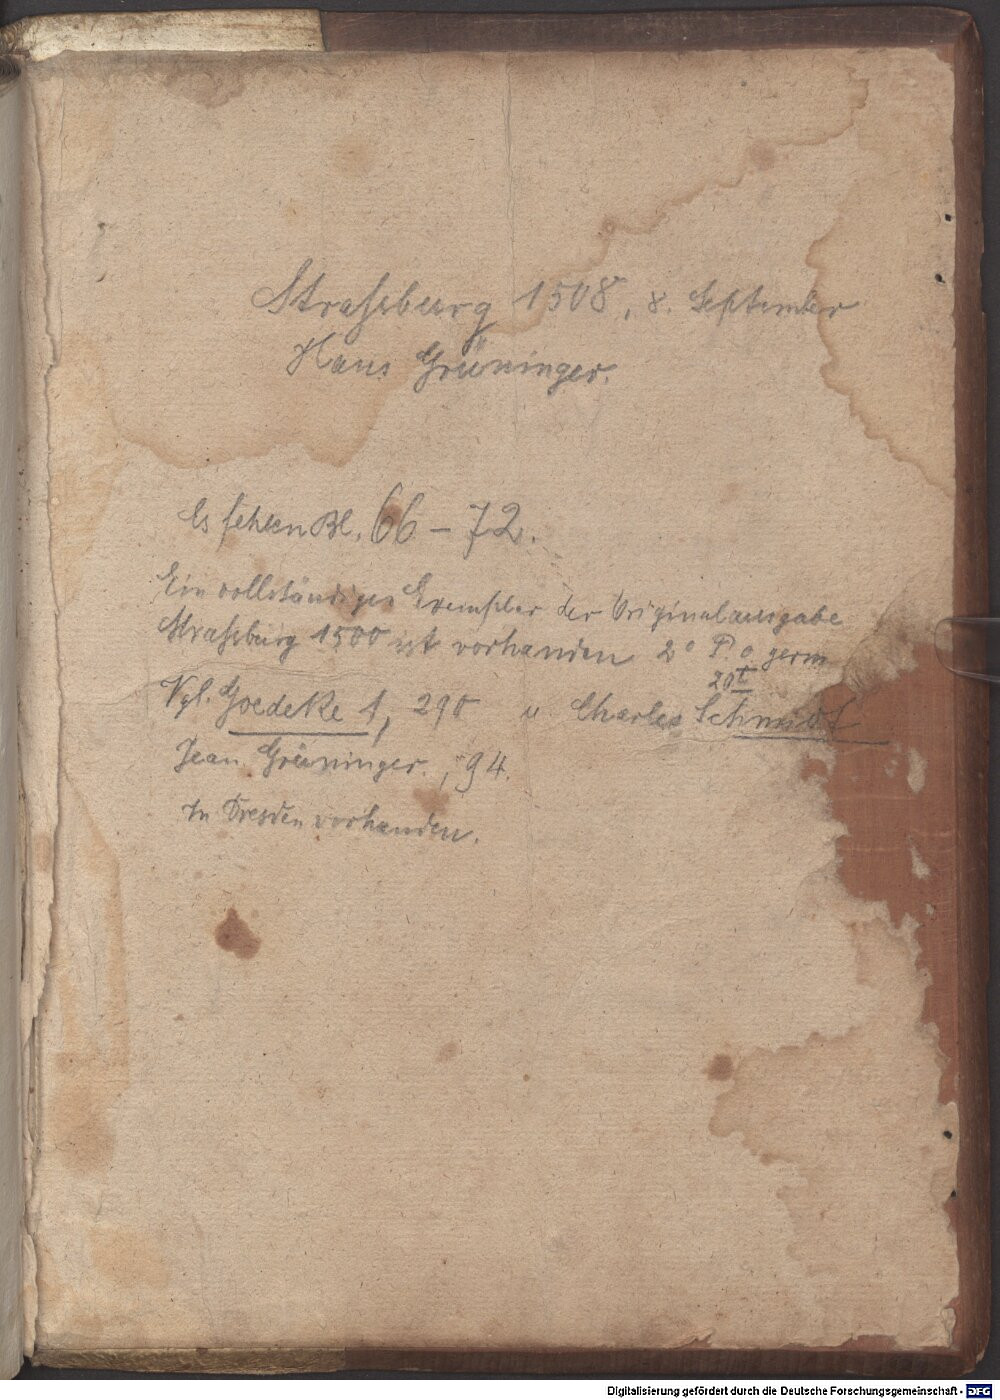 Strassburg 1508, 8. September
Hans Grüninger.
Es fehlen Bl. 66 – 72.
Ein vollständiges Exemplar der Originalausgabe
Strassburg 1500 ist vorhanden 2° P. o. germ
20t
Vgl. Goedeke 1, 290 u. Charles Schmidt
Jean Grüninger., 94.
In Dresden vorhanden.
Digitalisierung gefördert durch die Deutsche Forschungsgemeinschaft - DFG